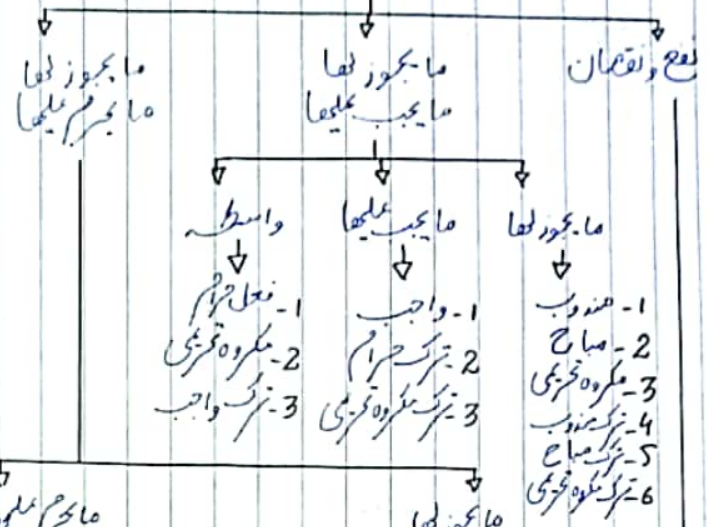 نفع و نقصان
ما يجوز لها
ما يجب عليها
ما يجوز لها
ما يحرم عليها
ما يجوز لها
1- مندوب
2- مباح
3- مکروہ تحریمی
4- ترک مندوب
5- ترک مباح
6- ترک مکروہ تحریمی
ما يجب عليها
1- واجب
2- ترک حرام
3- ترک مکروہ تحریمی
واسطہ
1- فعل حرام
2- مکروہ تحریمی
3- ترک واجب
ما يجوز لها
ما يحرم عليها